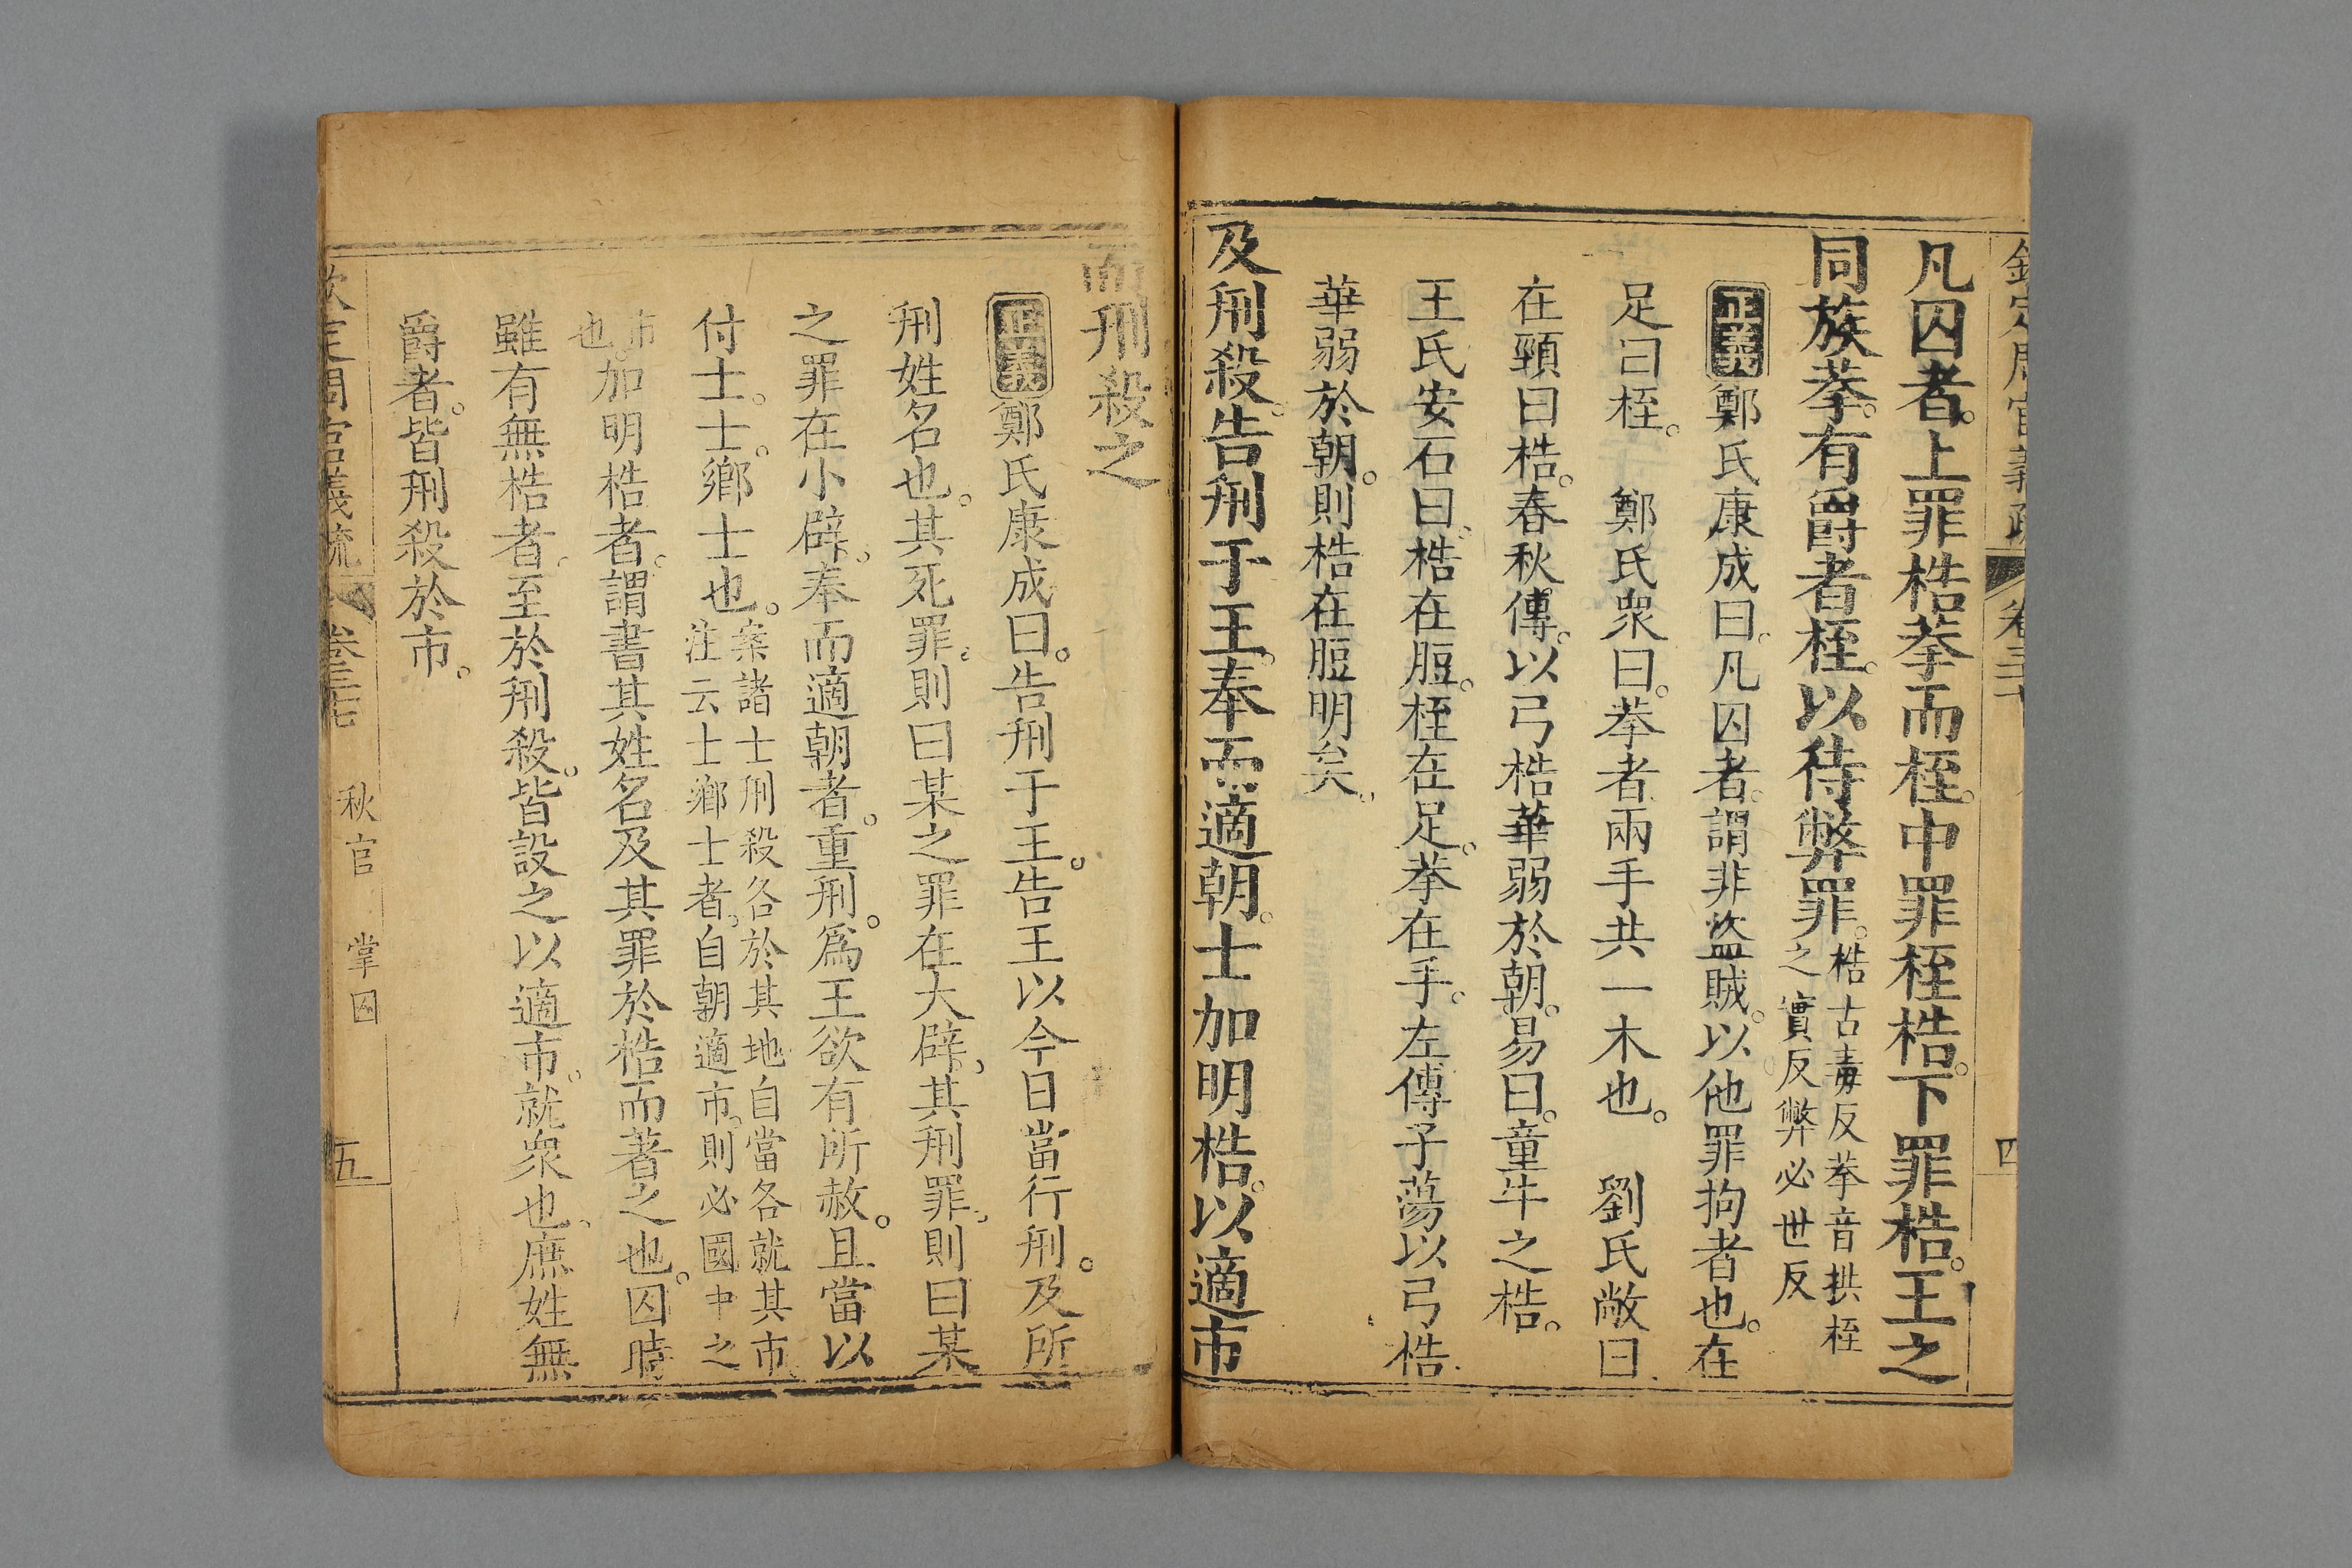 欽定周官義疏 卷三十七 四
凡囚者。上罪梏拲而桎。中罪桎梏。下罪梏。王之
同族拲。有爵者桎。以待弊罪。梏古毒反拲音拱桎
之實反弊必世反
正義鄭氏康成曰。凡囚者。謂非盜賊。以他罪拘者也。在
足曰桎。 鄭氏衆曰。拲者兩手共一木也。 劉氏敞曰
在頸曰梏。春秋傳。以弓梏華弱於朝。易曰。童牛之梏。
王氏安石曰。梏在脰。桎在足。拲在手。左傳子蕩以弓梏
華弱於朝。則梏在脰明矣。
及刑殺。告刑于王。奉而適朝。士加明梏。以適市
而刑殺之
正義鄭氏康成曰。告刑于王。告王以今日當行刑。及所
刑姓名也。其死罪。則曰某之罪在大辟。其刑罪。則曰某
之罪在小辟。奉而適朝者。重刑。爲王欲有所赦。且當以
付士。士。鄉士也。案諸士刑殺各於其地自當各就其市
注云士鄉士者。自朝適市。則必國中之
市
也。加明梏者。謂書其姓名及其罪於梏而著之也。囚時
雖有無梏者。至於刑殺。皆設之以適市。就衆也。庶姓無
爵者。皆刑殺於市。
欽定周官義疏 卷三十七 秋官 掌囚 五